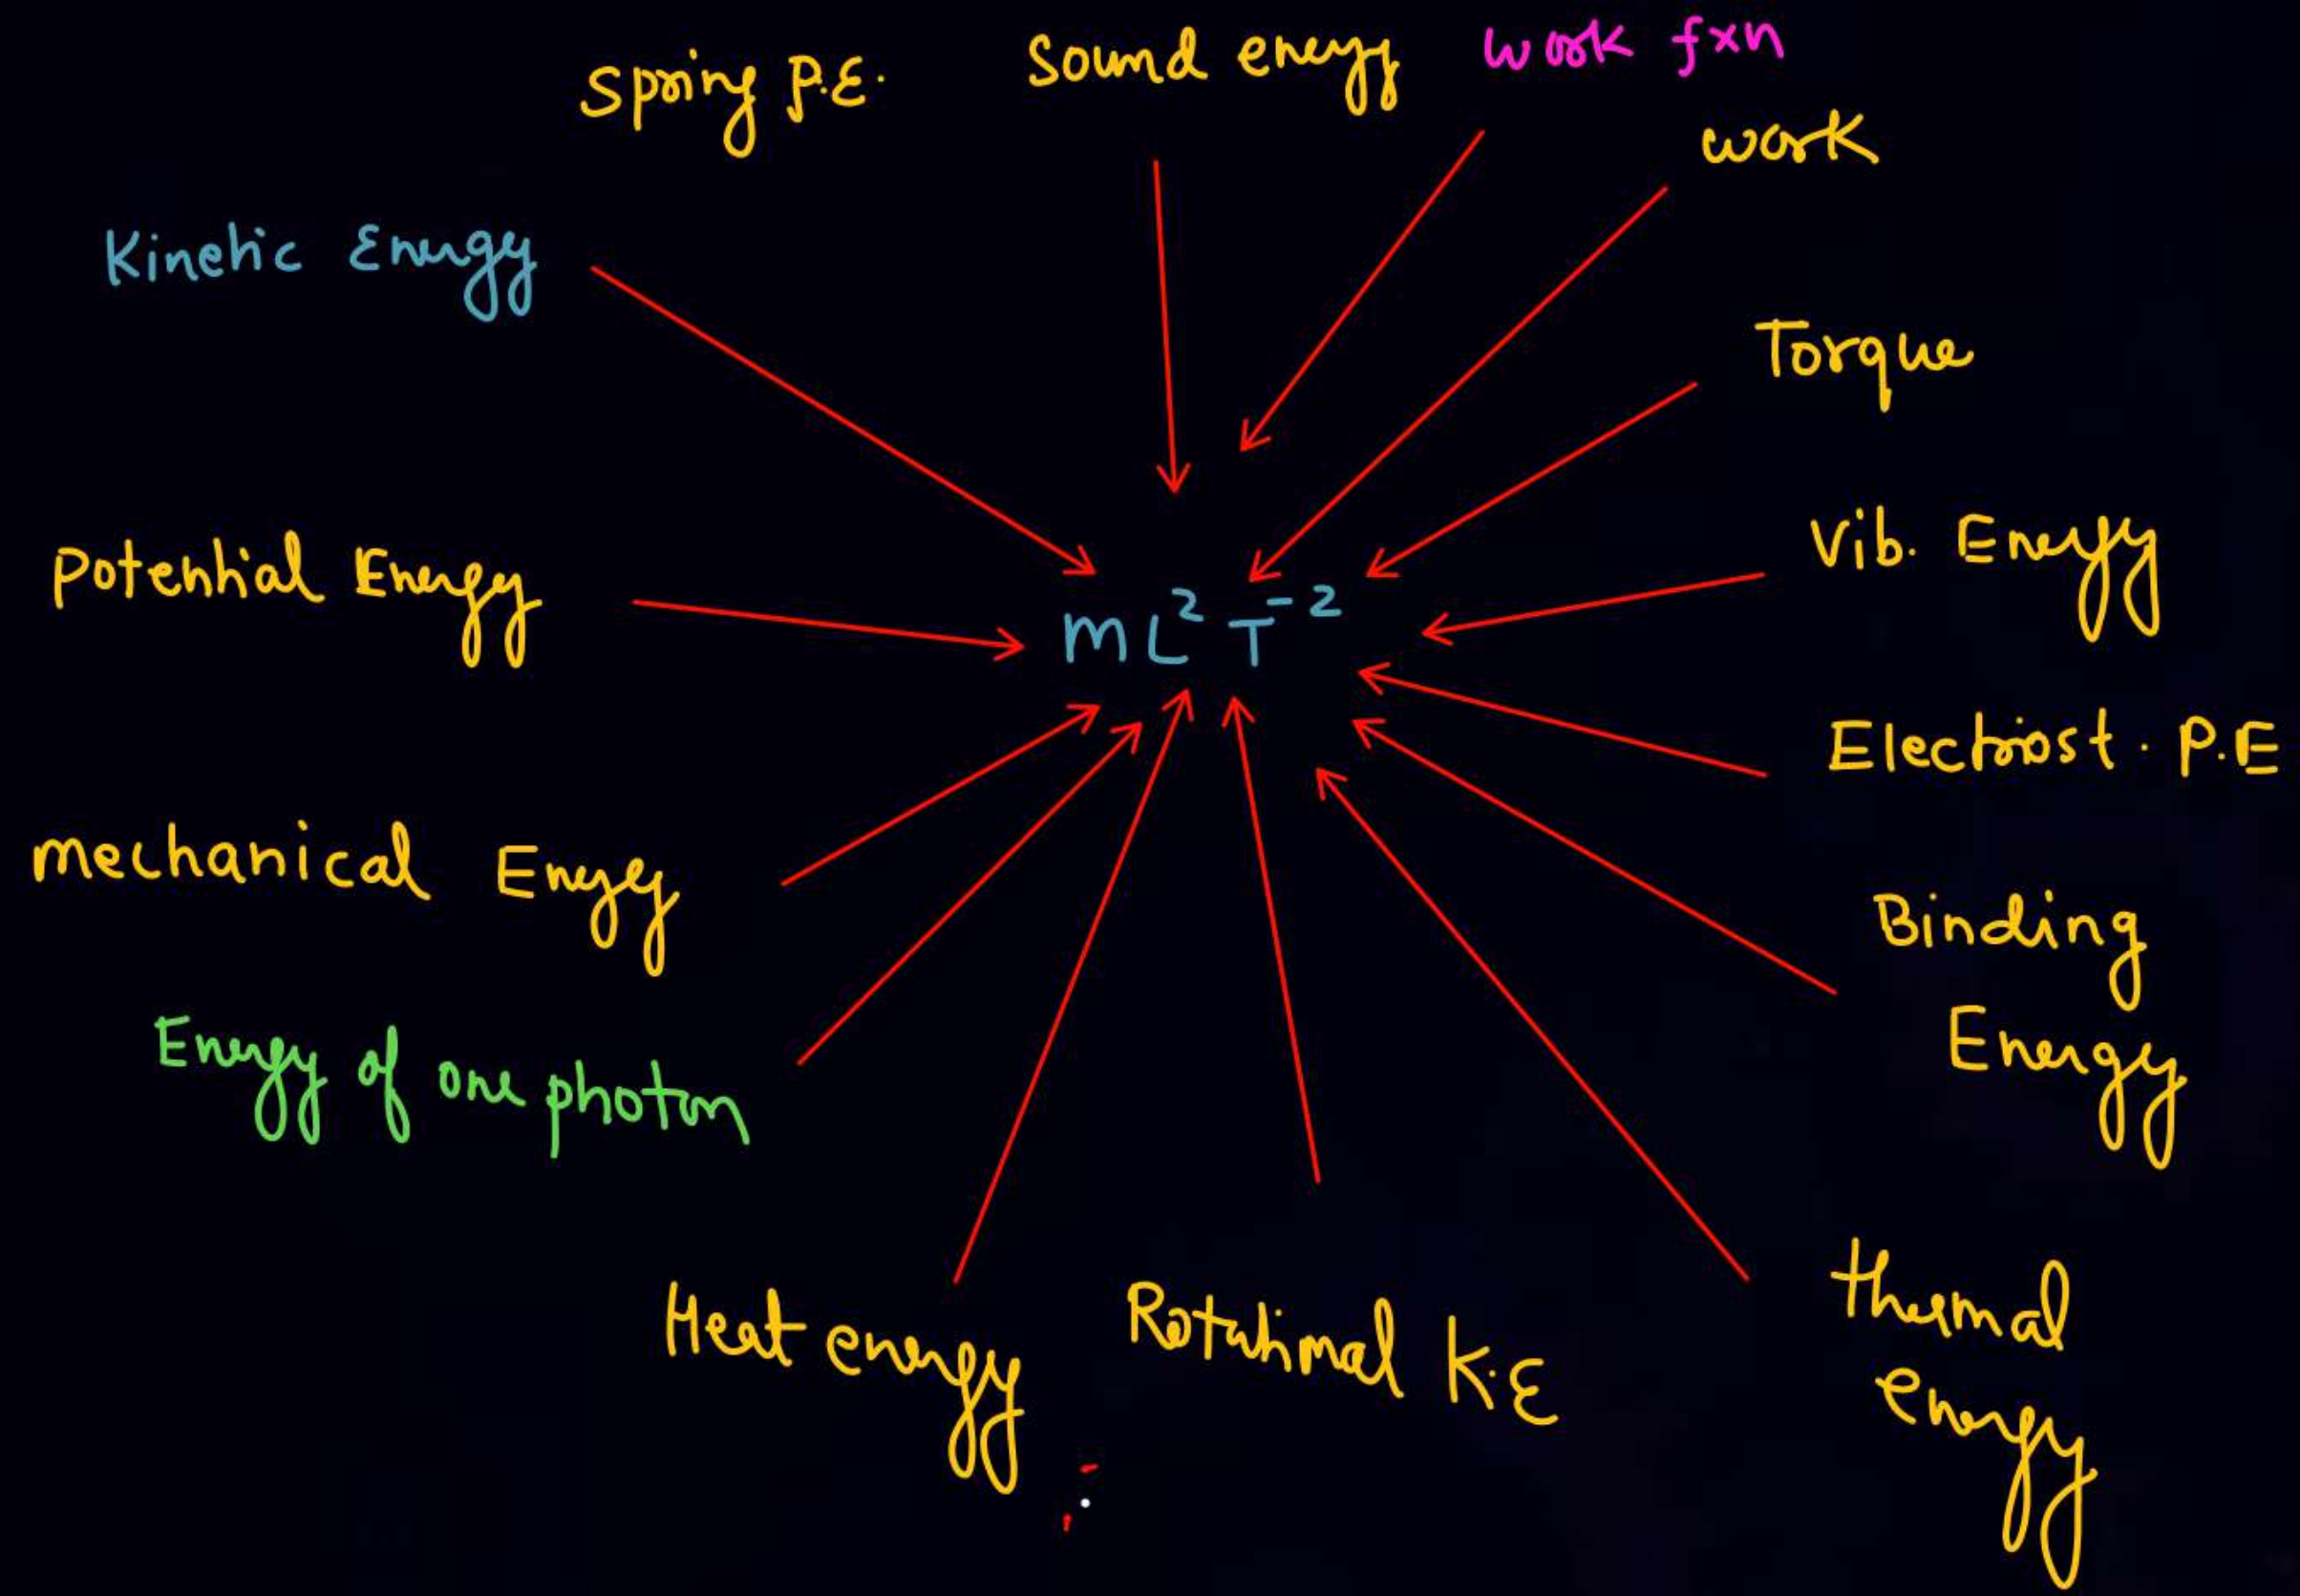 Spring P.E.
Sound energy
work fxn
work
Kinetic Energy
Torque
Potential Energy
Vib. Energy
ML² T⁻²
Electrost. P.E
mechanical Energy
Binding
Energy
Energy of one photon
Heat energy
Rotational K.E
thermal
energy